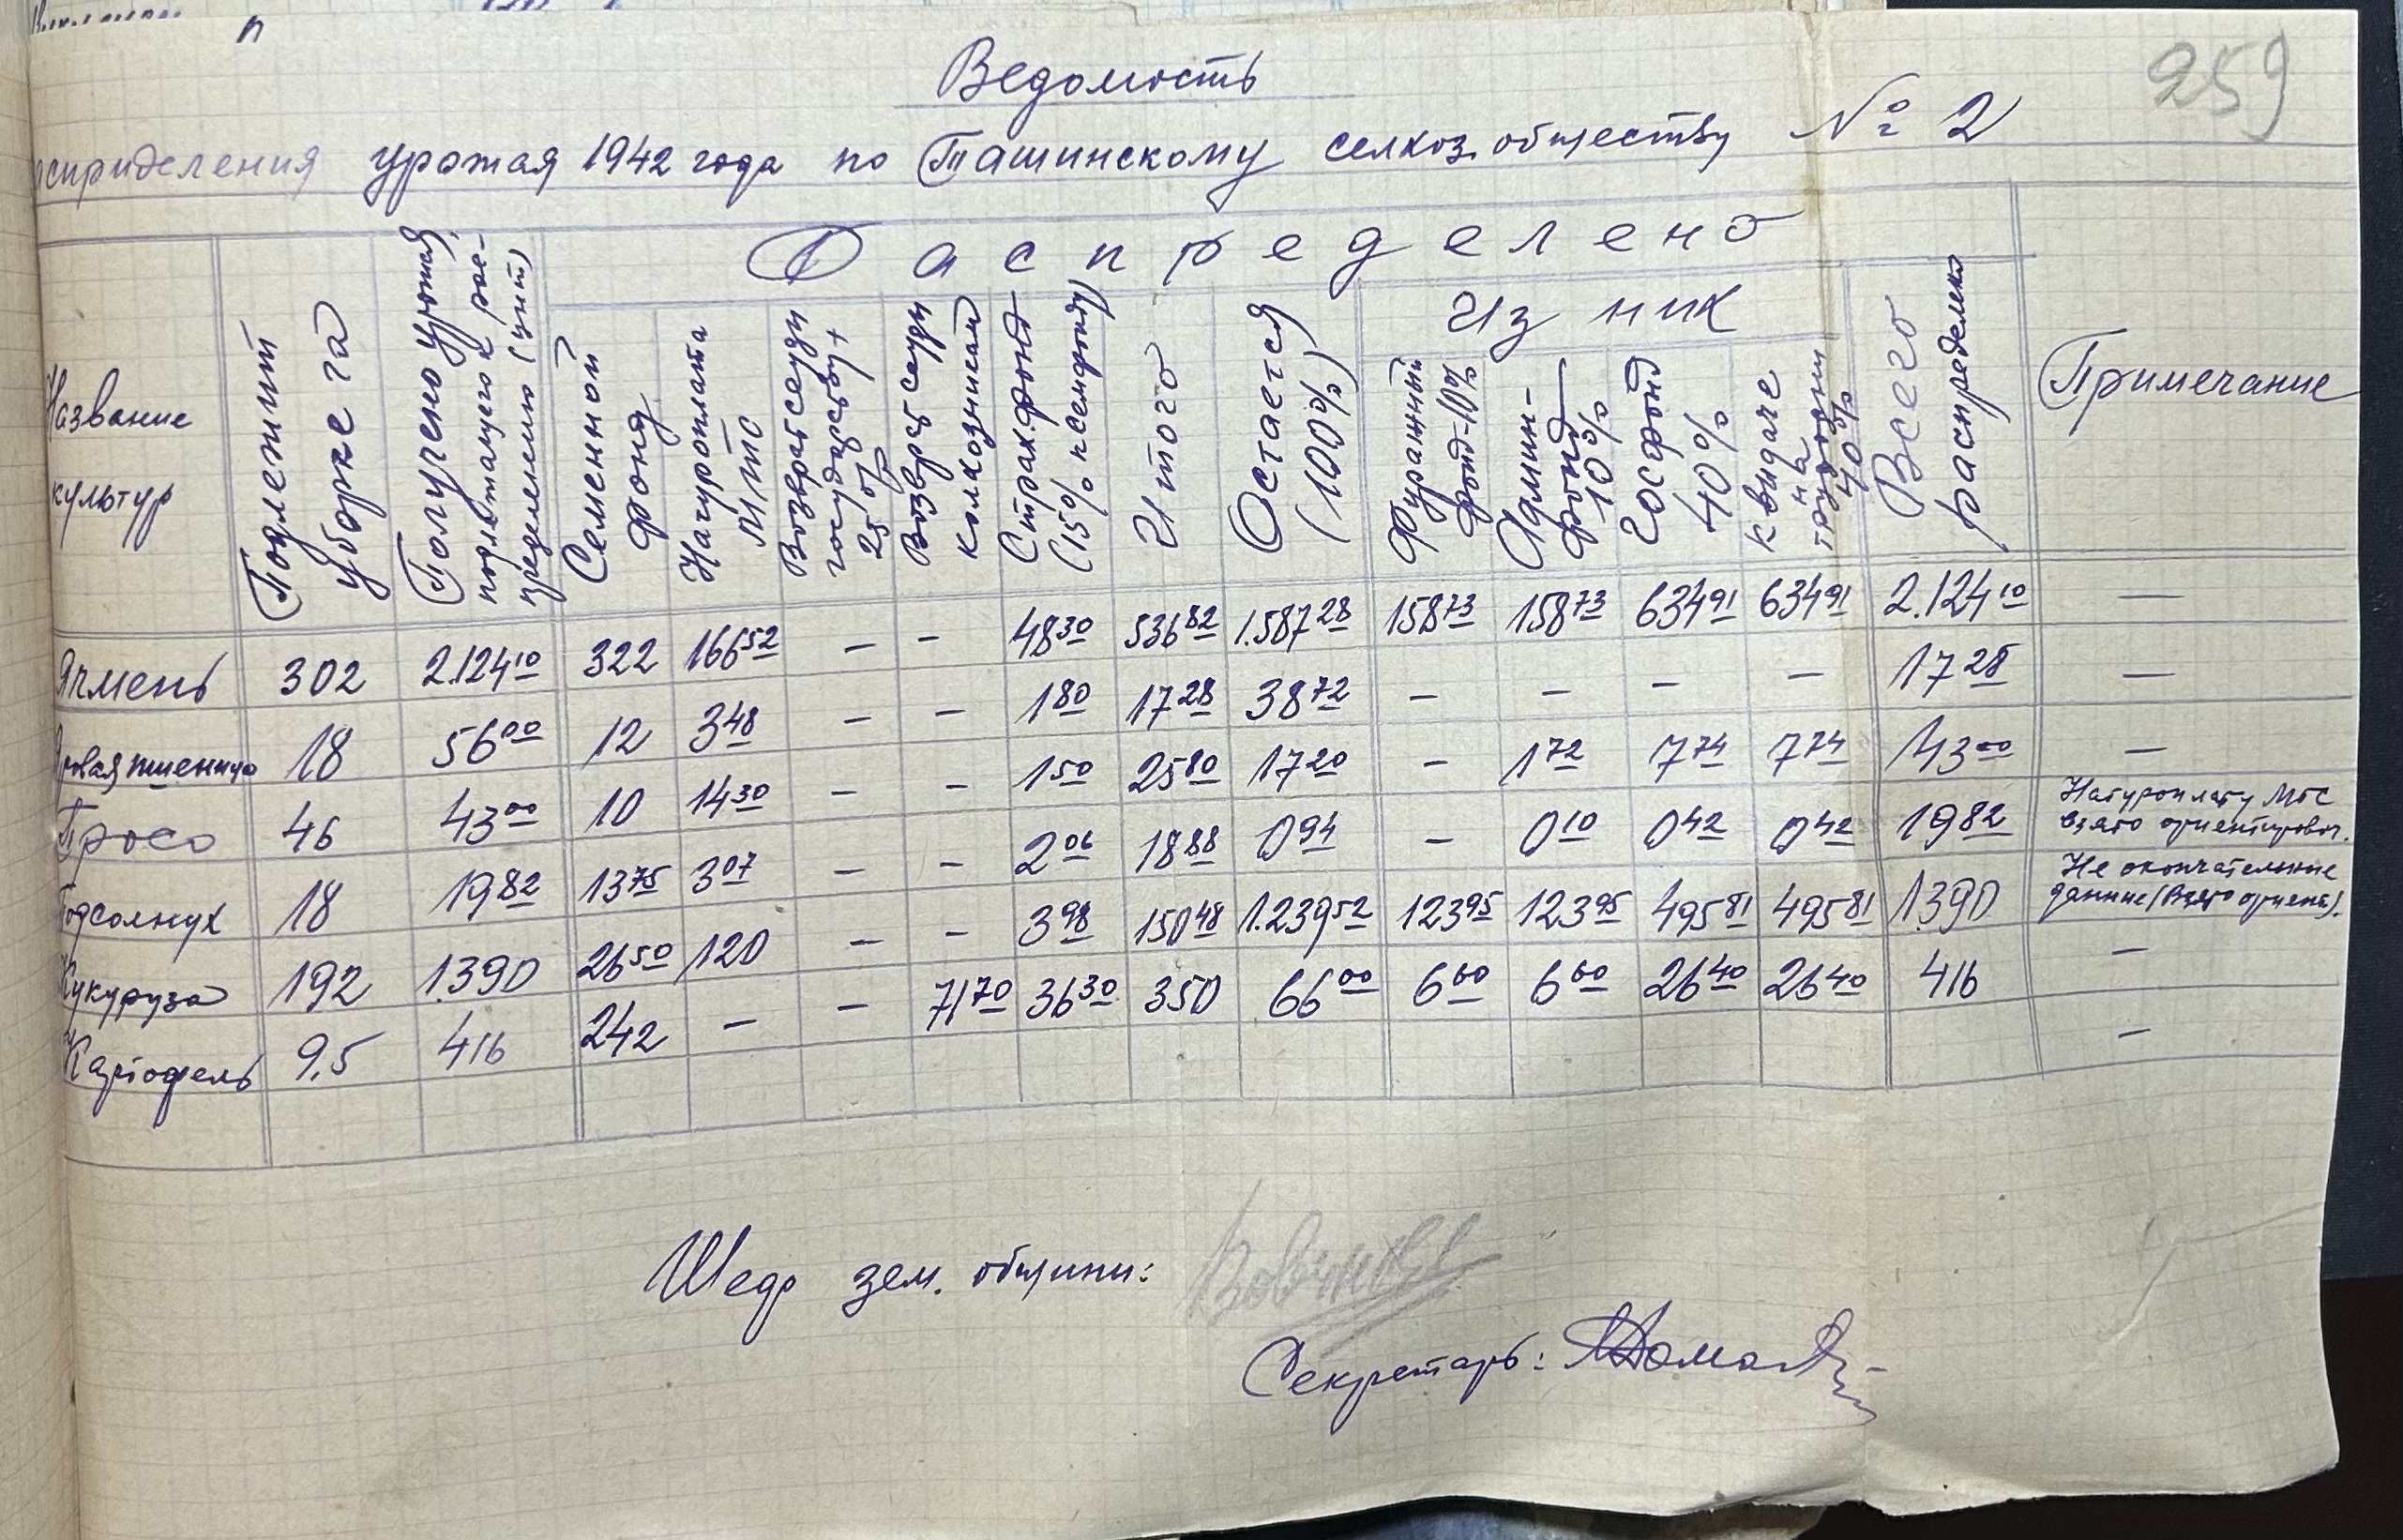 259
Ведомость
расприделения урожая 1942 года по Ташинскому селхоз. обществу № 2
Название культур
Подлежит уборке га
Получено урожая, подлежащего к распределению (цнт)
Распределено
Семенной фонд
Натуроплата МТС
Возврат ссуды государству + 25%
Возврат ссуды колхозникам
Страхфонд (15% к семфонду)
Итого
Остается (100%)
Из них
Фуражный фонд-10%
Админ-фонд 10%
Госфонд 40%
К выдаче на трудодни 40%
Всего распределено
Примечание
Ячмень 302 2.124 10 322 166 52 — — 48 30 536 82 1.587 28 158 73 158 73 634 91 634 91 2.124 10 —
Яровая пшеница 18 56 00 12 3 48 — — 1 80 17 28 38 72 — — — — 17 28 —
Просо 46 43 00 10 14 30 — — 1 50 25 80 17 20 — 1 72 7 74 7 74 43 00 —
Подсолнух 18 19 82 13 75 3 07 — — 2 06 18 88 0 94 — 0 10 0 42 0 42 19 82 Натуроплату МТС взято ориентировоч.
Кукуруза 192 1.390 26 50 120 — — 3 98 150 48 1.239 52 123 95 123 95 495 81 495 81 1.390 Не окончательные данные (Взято ориент).
—
Картофель 9,5 416 242 — — 71 70 36 30 350 66 00 6 60 6 60 26 40 26 40 416 —
Шеф зем. общины:
Секретарь: